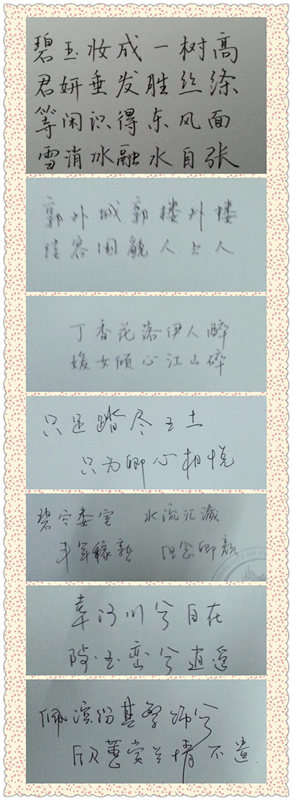 碧玉妆成一树高
君妍垂发胜丝绦
等闲识得东风面
雪消冰融水自张
郭外城郭楼外楼
佳客困觎人上人
丁香花落伊人醉
媛女倾心江山碎
只足踏尽王土
只为卿心相悦
碧空委室 水流
半年缘 思念卿颜
幸河川兮自在
陵玉峦兮逍遥
佩滨纷其繁饰兮
欣蕙赏兰情不遣